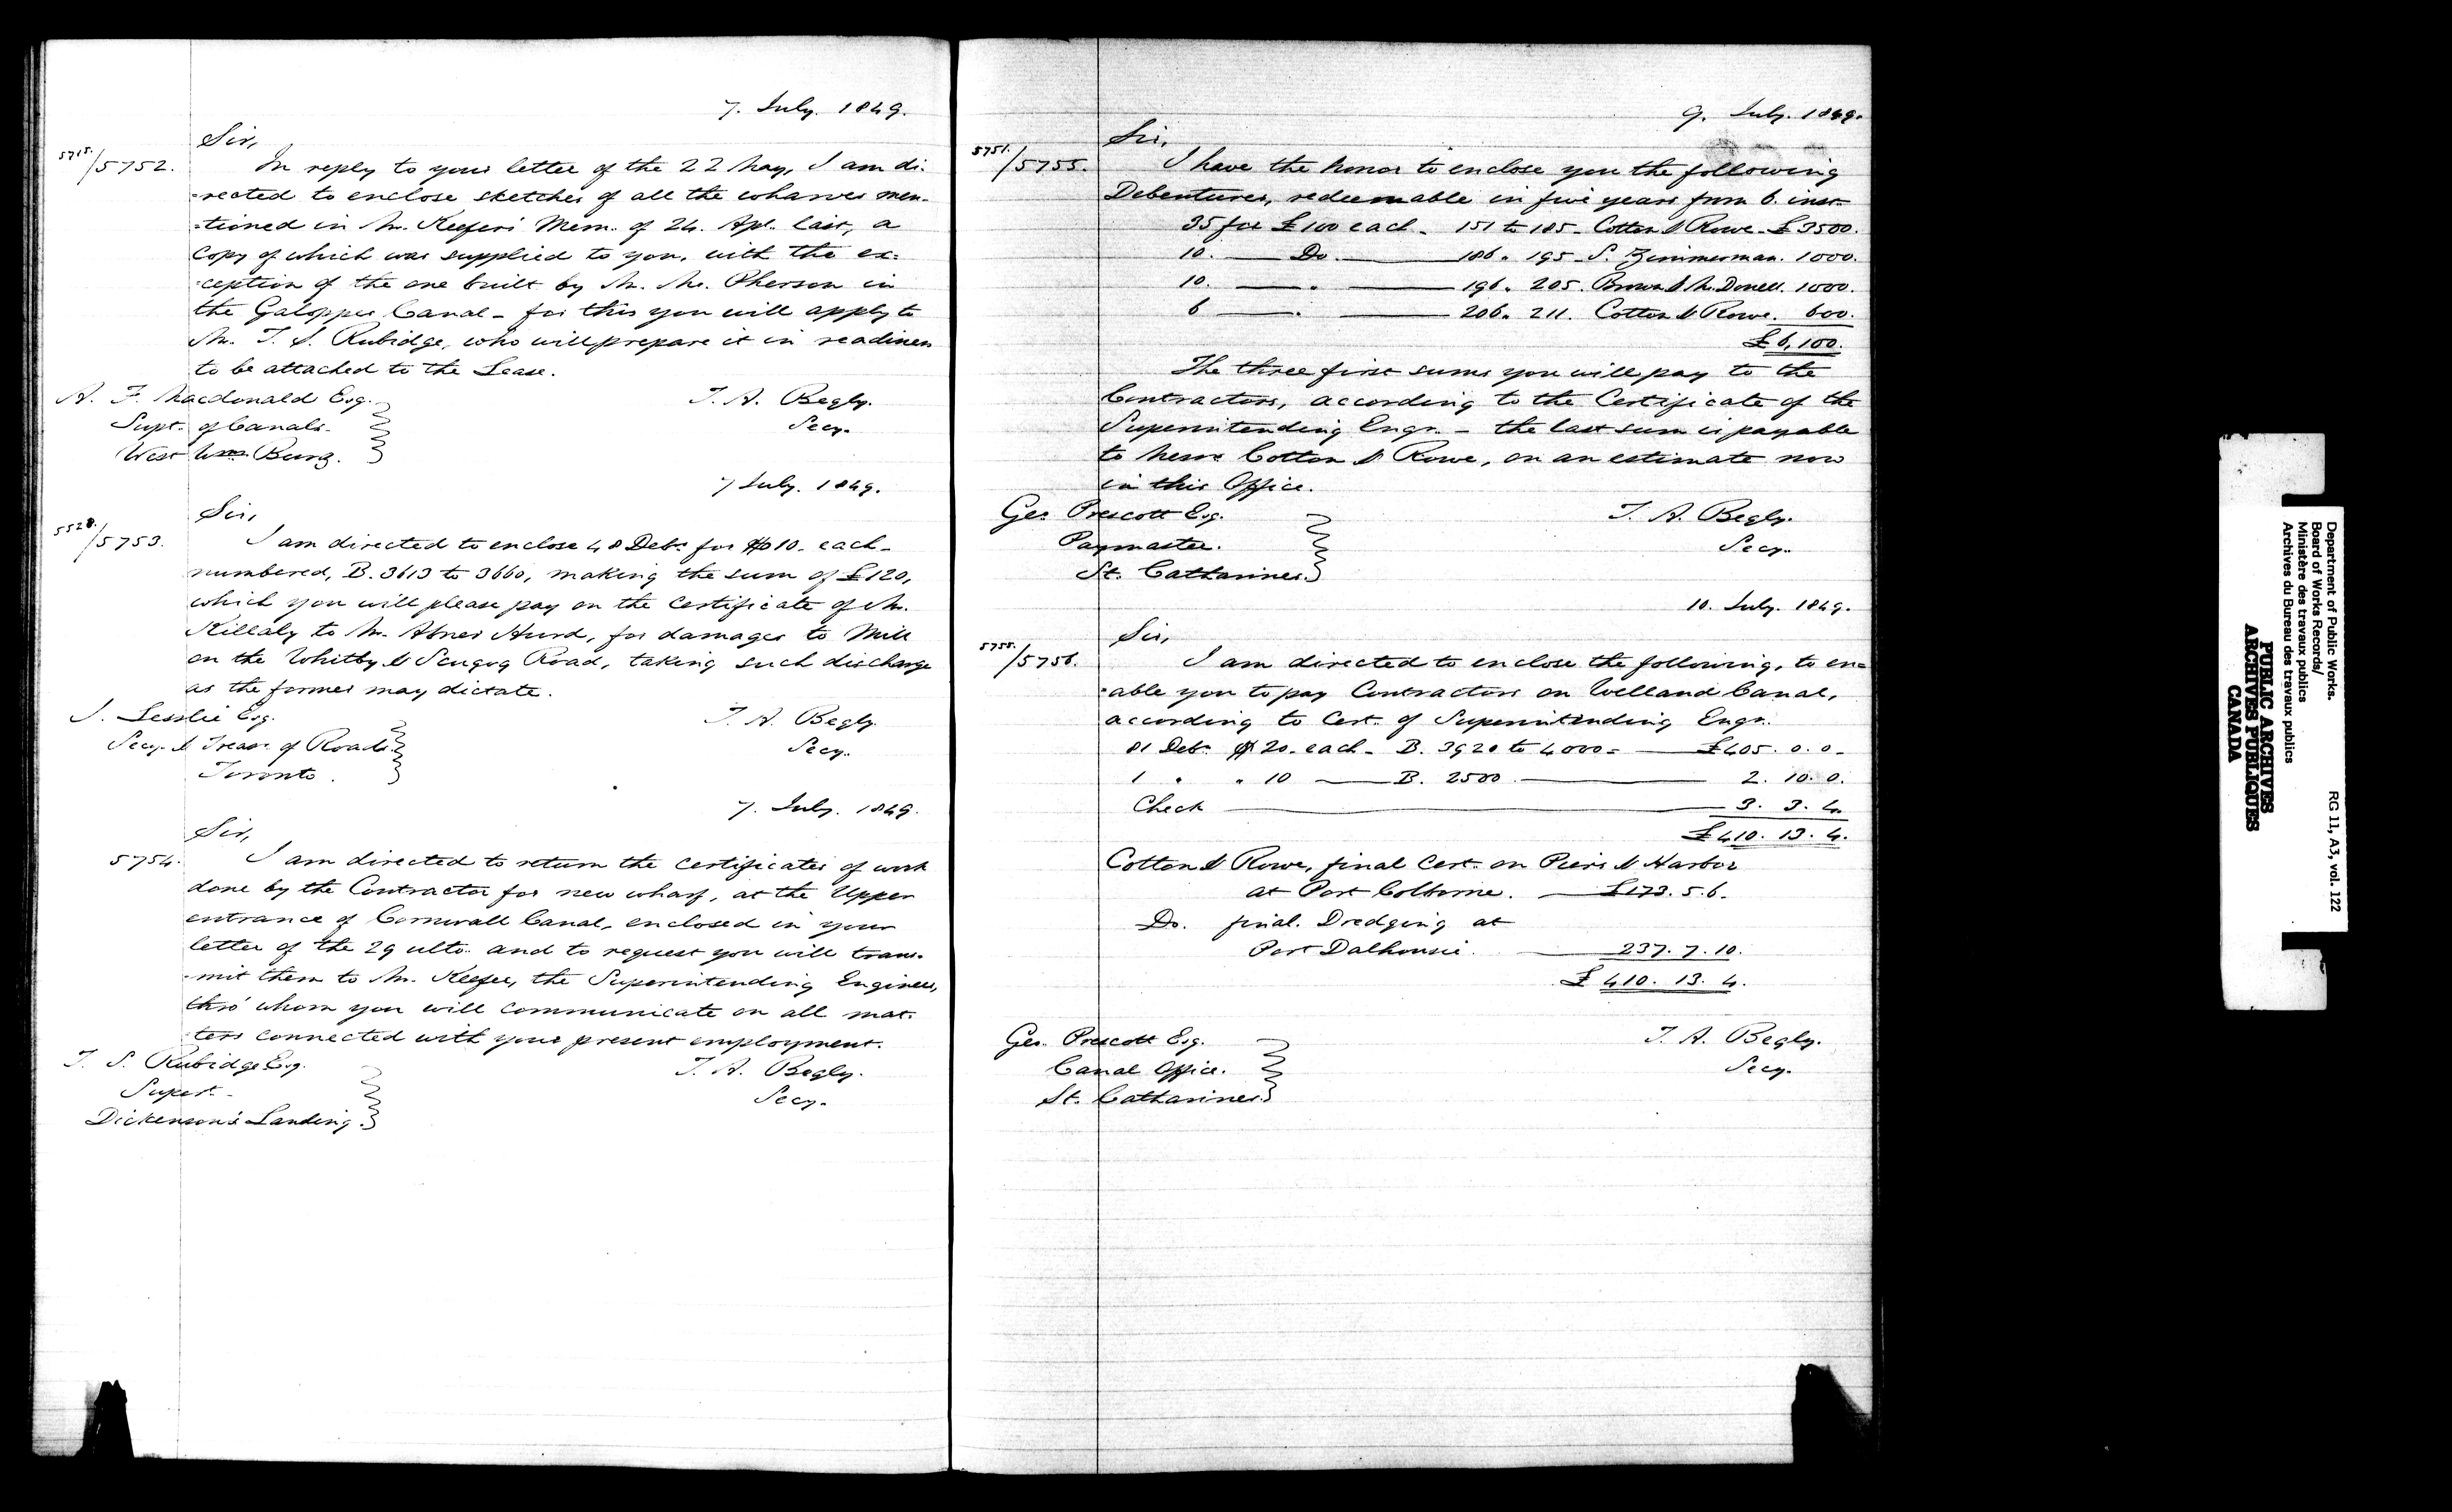 7. July. 1849.
Sir,
5715./5752. In reply to your letter of the 22 May, I am di-
-rected to enclose sketches of all the wharves men-
-tioned in Mr. Keefer's Mem. of 24. Apl. last, a
copy of which was supplied to you, with the ex-
-ception of the one built by Mr. Mc. Pherson in
the Galoppes Canal - for this you will apply to
Mr. T. S. Rubidge, who will prepare it in readiness
to be attached to the Lease.
A. F. Macdonald Esq. T. A. Begly.
Supt. of Canals. Secy.
West Wm. Burg.
7 July. 1849.
Sir,
5528./5753. I am directed to enclose 48 Debs. for $10. each -
numbered, B. 3613 to 3660, making the sum of £120,
which you will please pay on the Certificate of Mr.
Killaly to Mr. Abner Hurd, for damages to Mill
on the Whitby & Scugog Road, taking such discharge
as the former may dictate.
J. Lesslie Esq. T. A. Begly
Secy. & Treasr. of Roads Secy.
Toronto.
7. July. 1849.
Sir,
5754. I am directed to return the certificates of work
done by the Contractor for new wharf, at the Upper
entrance of Cornwall Canal, enclosed in your
letter of the 29 ulto. and to request you will trans-
-mit them to Mr. Keefer, the Superintending Engineer,
thro' whom you will communicate on all mat-
-ters connected with your present employment.
T. S. Rubidge Esq. T. A. Begly.
Supert. Secy.
Dickenson's Landing.
9. July. 1849.
Sir,
5751./5755. I have the honor to enclose you the following
Debentures, redeemable in five years from 6. inst.
35 for £100 each - 151 to 185 - Cotton & Rowe - £3500.
10. Do. 186. 195 - S. Zimmerman. 1000.
10. " 196. 205. Brown & McDonell. 1000.
6 " 206. 211. Cotton & Rowe. 600.
£6,100.
The three first sums you will pay to the
Contractors, according to the Certificate of the
Superintending Engr. - the last sum is payable
to Messrs Cotton & Rowe, on an estimate now
in this Office.
Geo. Prescott Esq. T. A. Begly.
Paymaster. Secy.
St. Catharines.
10. July. 1849.
Sir,
5755./5756. I am directed to enclose the following, to en-
-able you to pay Contractors on Welland Canal,
according to Cert. of Superintending Engr.
81 Debs. $20. each - B. 3920 to 4000 - £405. 0. 0 -
1 " " 10 B. 2500. 2. 10. 0.
Check 3. 3. 4.
£410. 13. 4.
Cotton & Rowe, final Cert. on Piers & Harbor
at Port Colborne. £173. 5. 6.
Do. final. Dredging at
Port Dalhousie. 237. 7. 10.
£410. 13. 4.
Geo. Prescott Esq. T. A. Begly.
Canal Office. Secy.
St. Catharines
Department of Public Works.
Board of Works Records/
Ministère des travaux publics
Archives du Bureau des travaux publics
RG 11, A3, vol. 122
PUBLIC ARCHIVES
ARCHIVES PUBLIQUES
CANADA